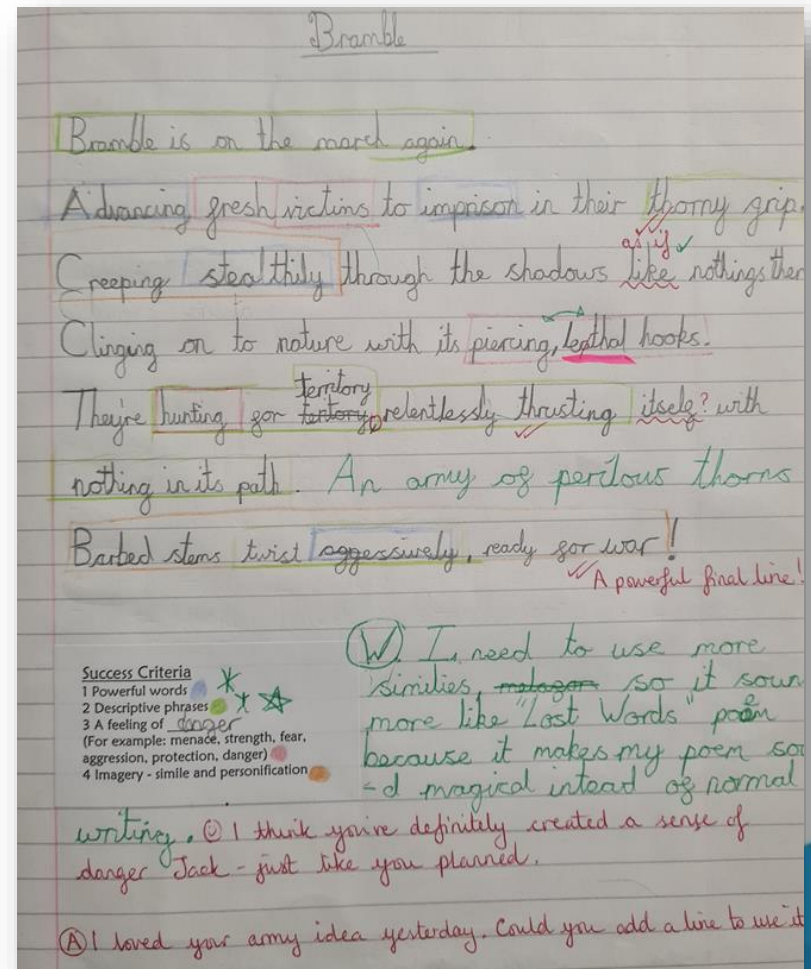 Bramble
Bramble is on the march again.
Advancing fresh victims to imprison in their thorny grip.
as if
Creeping stealthily through the shadows like nothings ther
Clinging on to nature with its piercing, lepthal hooks.
territory
They're hunting for tertory, relentlessly thrusting itself? with
nothing in its path. An army of perilous thorns
Barbed stems twist aggessively, ready for war!
A powerful final line!
Success Criteria
1 Powerful words
2 Descriptive phrases
3 A feeling of danger
(For example: menace, strength, fear,
aggression, protection, danger)
4 Imagery - simile and personification
W. I need to use more
similies, so it soun
more like "Lost Words" poem
because it makes my poem sou
-d magical intead of normal
writing. I think you've definitely created a sense of
danger Jack - just like you planned.
A I loved your army idea yesterday. Could you add a line to use it